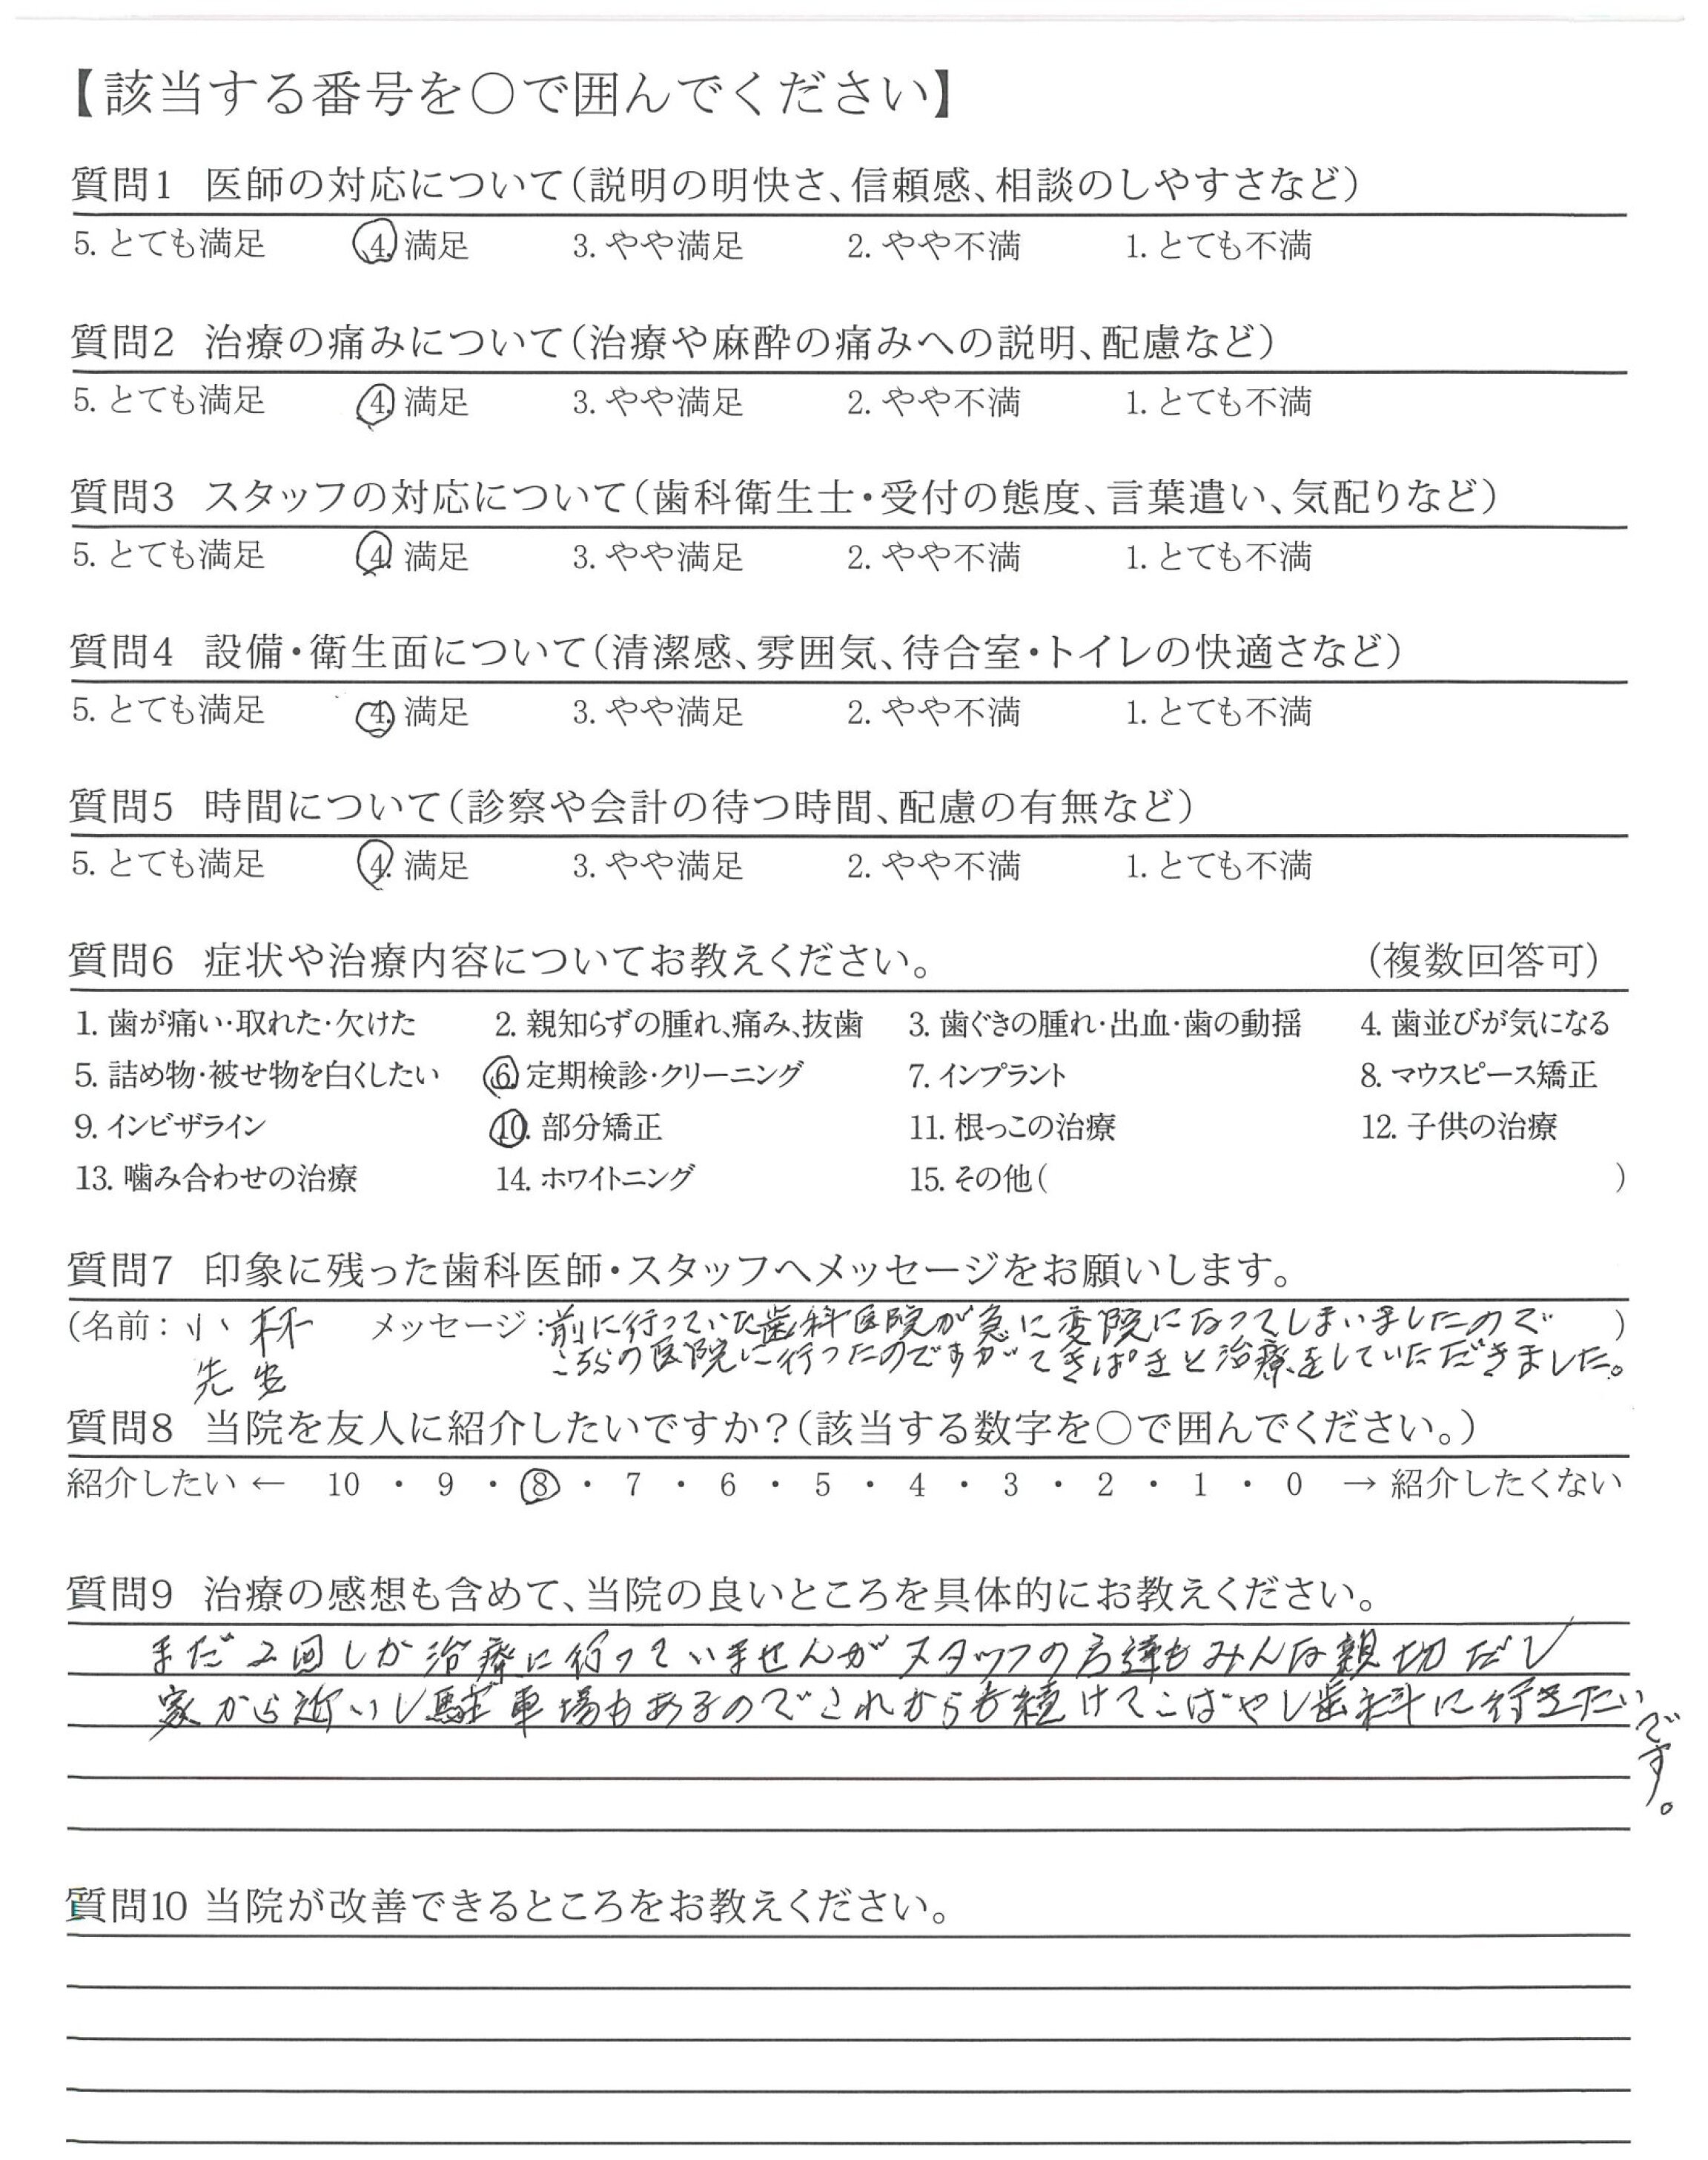 【該当する番号を○で囲んでください】
質問1 医師の対応について(説明の明快さ、信頼感、相談のしやすさなど)
5. とても満足 4. 満足 3. やや満足 2. やや不満 1. とても不満
質問2 治療の痛みについて(治療や麻酔の痛みへの説明、配慮など)
5. とても満足 4. 満足 3. やや満足 2. やや不満 1. とても不満
質問3 スタッフの対応について(歯科衛生士・受付の態度、言葉遣い、気配りなど)
5. とても満足 4. 満足 3. やや満足 2. やや不満 1. とても不満
質問4 設備・衛生面について(清潔感、雰囲気、待合室・トイレの快適さなど)
5. とても満足 4. 満足 3. やや満足 2. やや不満 1. とても不満
質問5 時間について(診察や会計の待つ時間、配慮の有無など)
5. とても満足 4. 満足 3. やや満足 2. やや不満 1. とても不満
質問6 症状や治療内容についてお教えください。 (複数回答可)
1. 歯が痛い・取れた・欠けた 2. 親知らずの腫れ、痛み、抜歯 3. 歯ぐきの腫れ・出血・歯の動揺 4. 歯並びが気になる
5. 詰め物・被せ物を白くしたい 6. 定期検診・クリーニング 7. インプラント 8. マウスピース矯正
9. インビザライン 10. 部分矯正 11. 根っこの治療 12. 子供の治療
13. 噛み合わせの治療 14. ホワイトニング 15. その他( )
質問7 印象に残った歯科医師・スタッフへメッセージをお願いします。
(名前: 小林 メッセージ: 前に行っていた歯科医院が急に変院になってしまいましたので )
先生 こちらの医院に行ったのですがてきぱきと治療をしていただきました。
質問8 当院を友人に紹介したいですか?(該当する数字を○で囲んでください。)
紹介したい ← 10 ・ 9 ・ 8 ・ 7 ・ 6 ・ 5 ・ 4 ・ 3 ・ 2 ・ 1 ・ 0 → 紹介したくない
質問9 治療の感想も含めて、当院の良いところを具体的にお教えください。
まだ2回しか治療に行っていませんがスタッフの方達もみんな親切だし
家から近いし駐車場もあるのでこれからも続けてこばやし歯科に行きたい
です。
質問10 当院が改善できるところをお教えください。